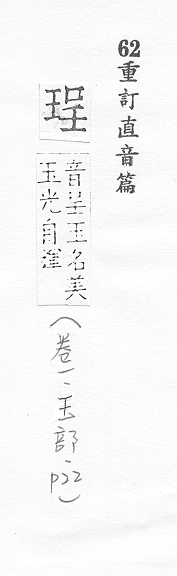 62重訂直音篇
珵
音呈玉名美
玉光自
（卷一、玉部、p22）